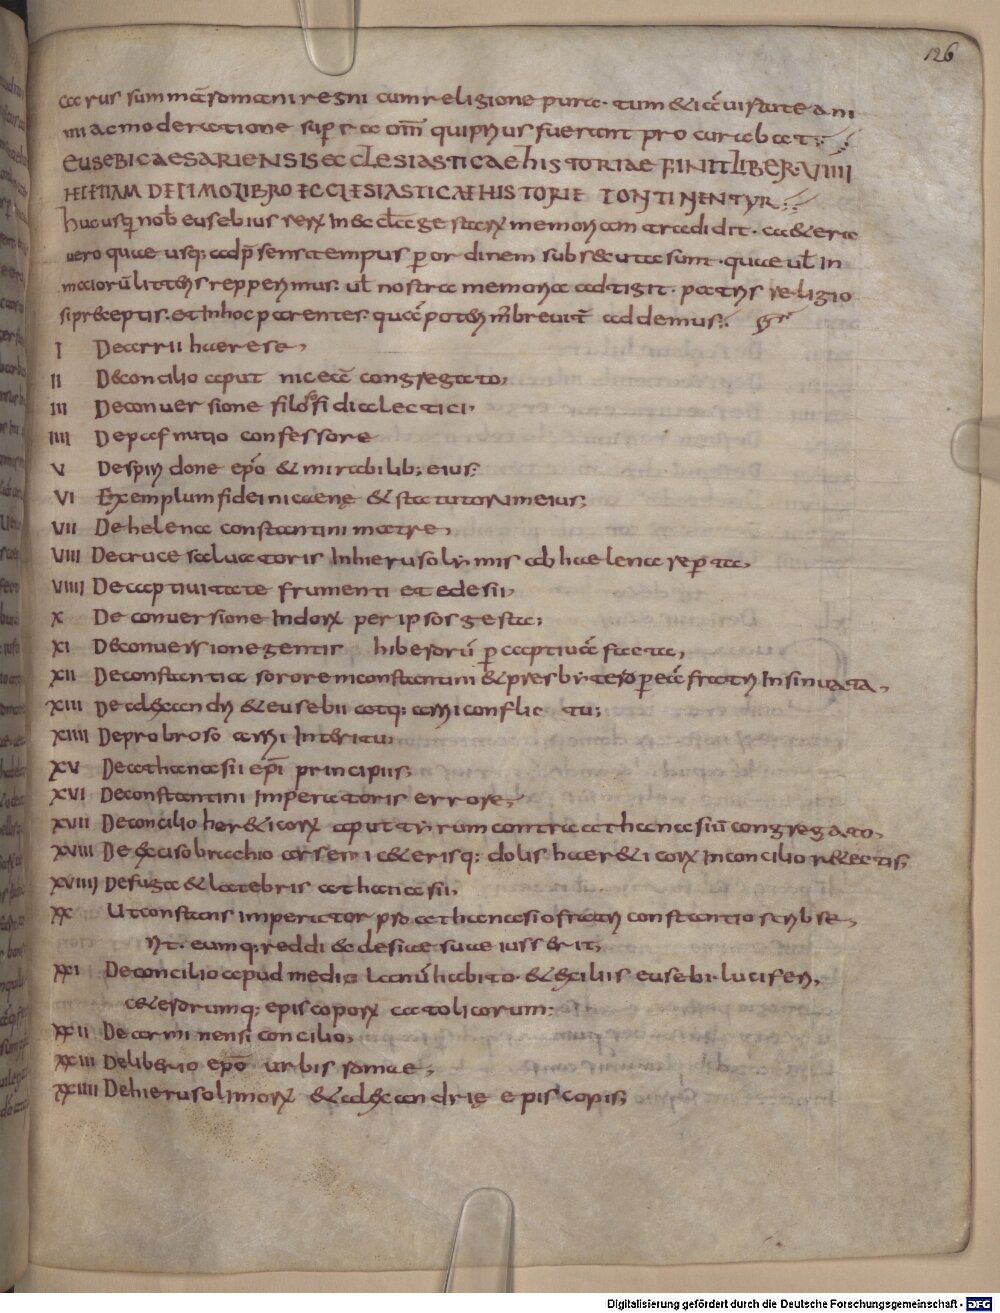 126
carus summam romani regni cum religione pura. tum & iā uirtute ani
mi ac moderatione sup̄ra om̄ qui prius fuerant procurabat;
EUSEBI CAESARIENSIS ECCLESIASTICAE HISTORIAE FINIT LIBER. VIIII
HEC ETIAM DECIMO LIBRO ECCLESIASTICAE HISTORIE CONTINENTUR;
Hucusq; nob̄ eusebius rerū in eccl̄a gestarū memoriam tradidit. cae&era
uero quae usq; ad p̄sens tempus per ordinem subsecuta sunt. quae ul̄ in
maiorū litteris repperimus. ul̄ nostra memoria adtigit. patris religio
si pr&ceptis. et in hoc parentes. quā poterim̄ breuit̄ addemus;
I De arrii haerese,
II De concilio aput niceā congregato;
III De conuersione filosofi dialectici,
IIII De pafnutio confessore
V De spiridone ep̄o & mirabilib; eius;
VI Exemplum fidei nicaenę & statutorum eius;
VII De helena constantini matre,
VIII De cruce saluatoris in hierusolymis ab haelena reperta,
VIIII De captiuitate frumenti et edesii,
X De conuersione indorū per ipsos gesta;
XI De conuersione gentis hiberorū p captiuā facta,
XII De constantia sorore constantini & presbytero p eā fratri insinuata,
XIII De alexandri & eusebii atq; arrii conflictu;
XIIII De probroso arrii interitu,
XV De athanasii ep̄i principiis;
XVI De constantini imperatoris errore,
XVII De concilio her&icorū aput tyrum contra athanasiū congregato,
XVIII De exciso brachio arseni cae&erisq; dolis haer&icorū in concilio r&ectis;
XVIIII De fuga & latebris athanasii,
XX Ut constans imperator pro athanasio fratri constantio scribse,
rit. eumq; reddi ecclesiae suae iusserit;
XXI De concilio apud mediolanū habito. & exiliis eusebi. luciferi,
cae&erorumq; episcoporū catolicorum;
XXII De ariminensi concilio,
XXIII De liberio ep̄o urbis romae,
XXIIII De hierusolimorū & alexandrię episcopis;
Digitalisierung gefördert durch die Deutsche Forschungsgemeinschaft - DFG